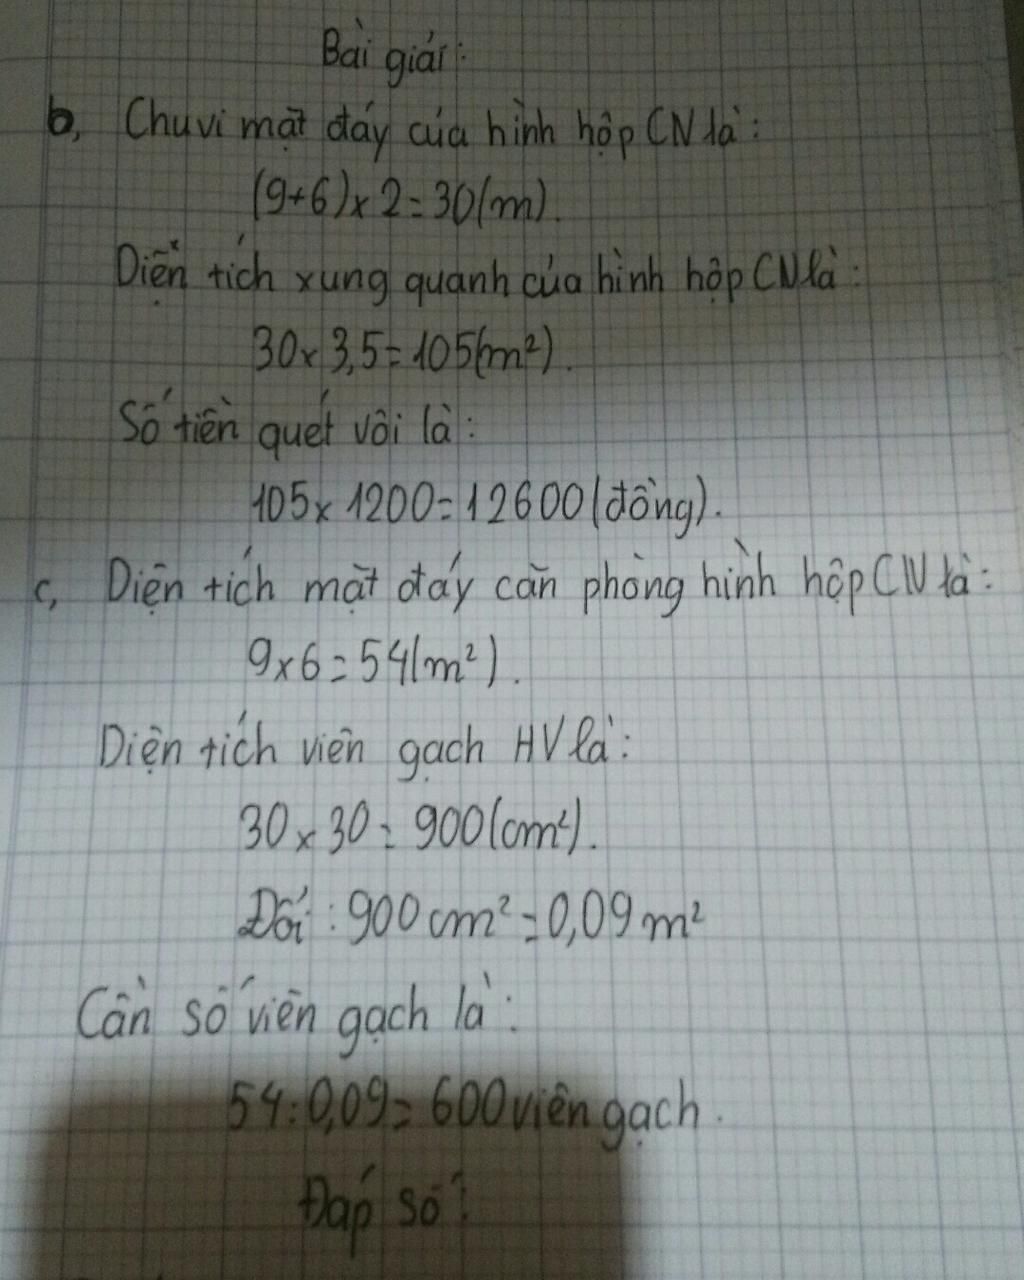 Bài giải:
b, Chu vi mặt đáy của hình hộp CN là:
(9+6)x 2=30(m).
Diện tích xung quanh của hình hộp CN là:
30x 3,5=105(m²).
Số tiền quét vôi là:
105x 1200=12600(đồng).
c, Diện tích mặt đáy căn phòng hình hộp CN là:
9x6=54(m²).
Diện tích viên gạch HV là:
30x30= 900(cm²).
Đổi: 900cm²=0,09m²
Cần số viên gạch là:
54:0,09= 600 viên gạch.
Đáp số: